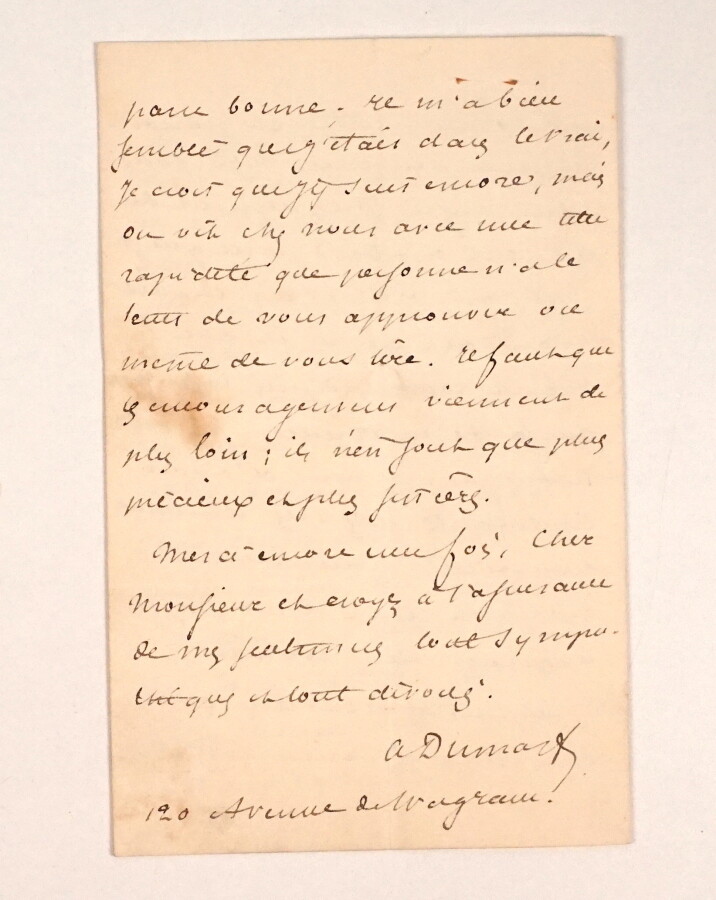 paru bonne. Il m'a bien
semblé que j'étais dans le vrai,
Je crois que j'y suis encore, mais
on vit chez nous avec une telle
rapidité que personne n'a le
temps de vous approuver ou
même de vous lire. Il faut que
les encouragements viennent de
plus loin; ils n'en sont que plus
précieux et plus sincères.
Merci encore une fois, Cher
Monsieur et croyez à l'assurance
de mes sentiments tout sympa-
thiques et tout dévoués.
A Dumas f
120 Avenue de Wagram.